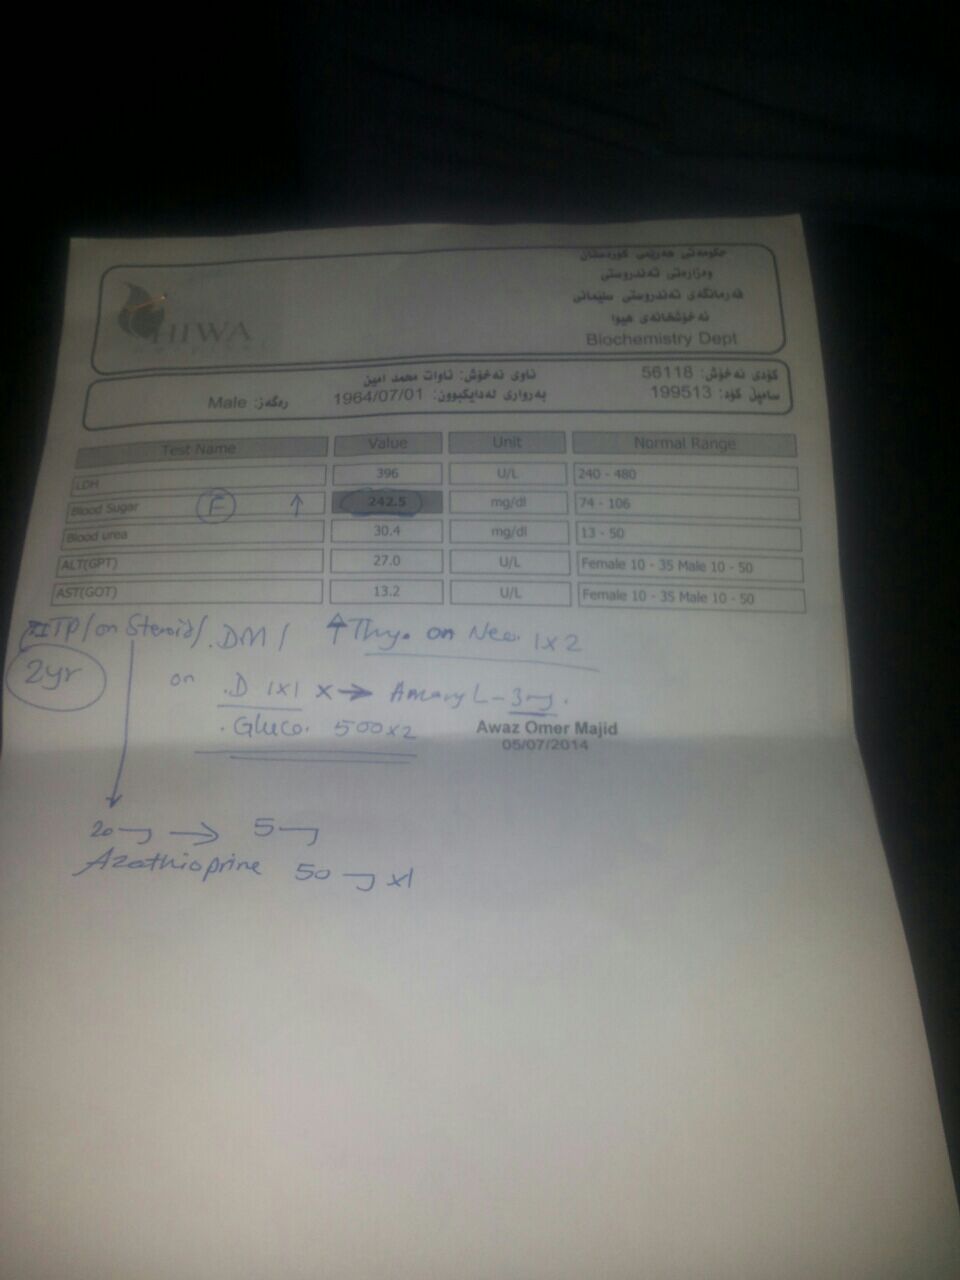 حکومەتی هەرێمی کوردستان
وەزارەتی تەندروستی
فەرمانگەی تەندروستی سلێمانی
نەخۆشخانەی هیوا
HIWA
Biochemistry Dept
کۆدی نەخۆش: 56118 ناوی نەخۆش: ئاوات محمد امین
سامپل کۆد: 199513 بەرواری لەدایکبوون: 1964/07/01 رەگەز: Male
Test Name Value Unit Normal Range
LDH 396 U/L 240 - 480
Blood Sugar F ↑ 242.5 mg/dl 74 - 106
Blood urea 30.4 mg/dl 13 - 50
ALT(GPT) 27.0 U/L Female 10 - 35 Male 10 - 50
AST(GOT) 13.2 U/L Female 10 - 35 Male 10 - 50
ITP/on Steroid/ .DM/ ↑Thy. on Neo 1x2
2yr
on .D 1x1 x→ Amaryl - 3mg.
.Gluco. 500x2
Awaz Omer Majid
05/07/2014
20mg → 5mg
Azathioprine 50mg x1